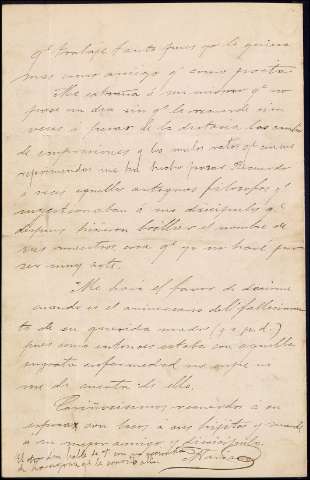 qᵉ trabaje tanto pues yo le quiero
mas como amigo qᵉ como poeta.
Me extraña á mi mismo qᵉ no
pase un dia sin qᵉ le recuerde cien
veces á pesar de la distancia los cambios
de impresiones y los malos ratos qᵉ
me ha hecho pasar. Recuerdo
á veces aquellos antiguos filosofos qᵉ
á sus discipulos qᵉ
despues hicieron brillar el nombre de
sus maestros, cosa qᵉ yo no haré por
ser muy
Me hará el favor de decirme
cuando es el aniversario del fallecimien
to de su querida madre (q. e. p. d.)
pues como entonces estaba con aquella
ingrata enfermedad no supe ni
me di cuenta de ello.
Cariñosisimos recuerdos á su
esposa, con besos a sus hijitos y mande
a su mejor amigo y discipulo